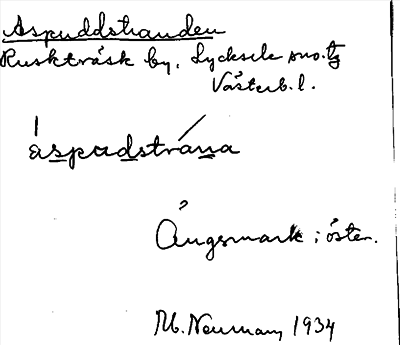 Aspuddstranden
Ruskträsk by, Lycksele sn o. tg
Västerb. l.
áspudstrána
Ängsmark i öster.
M. Neuman, 1934